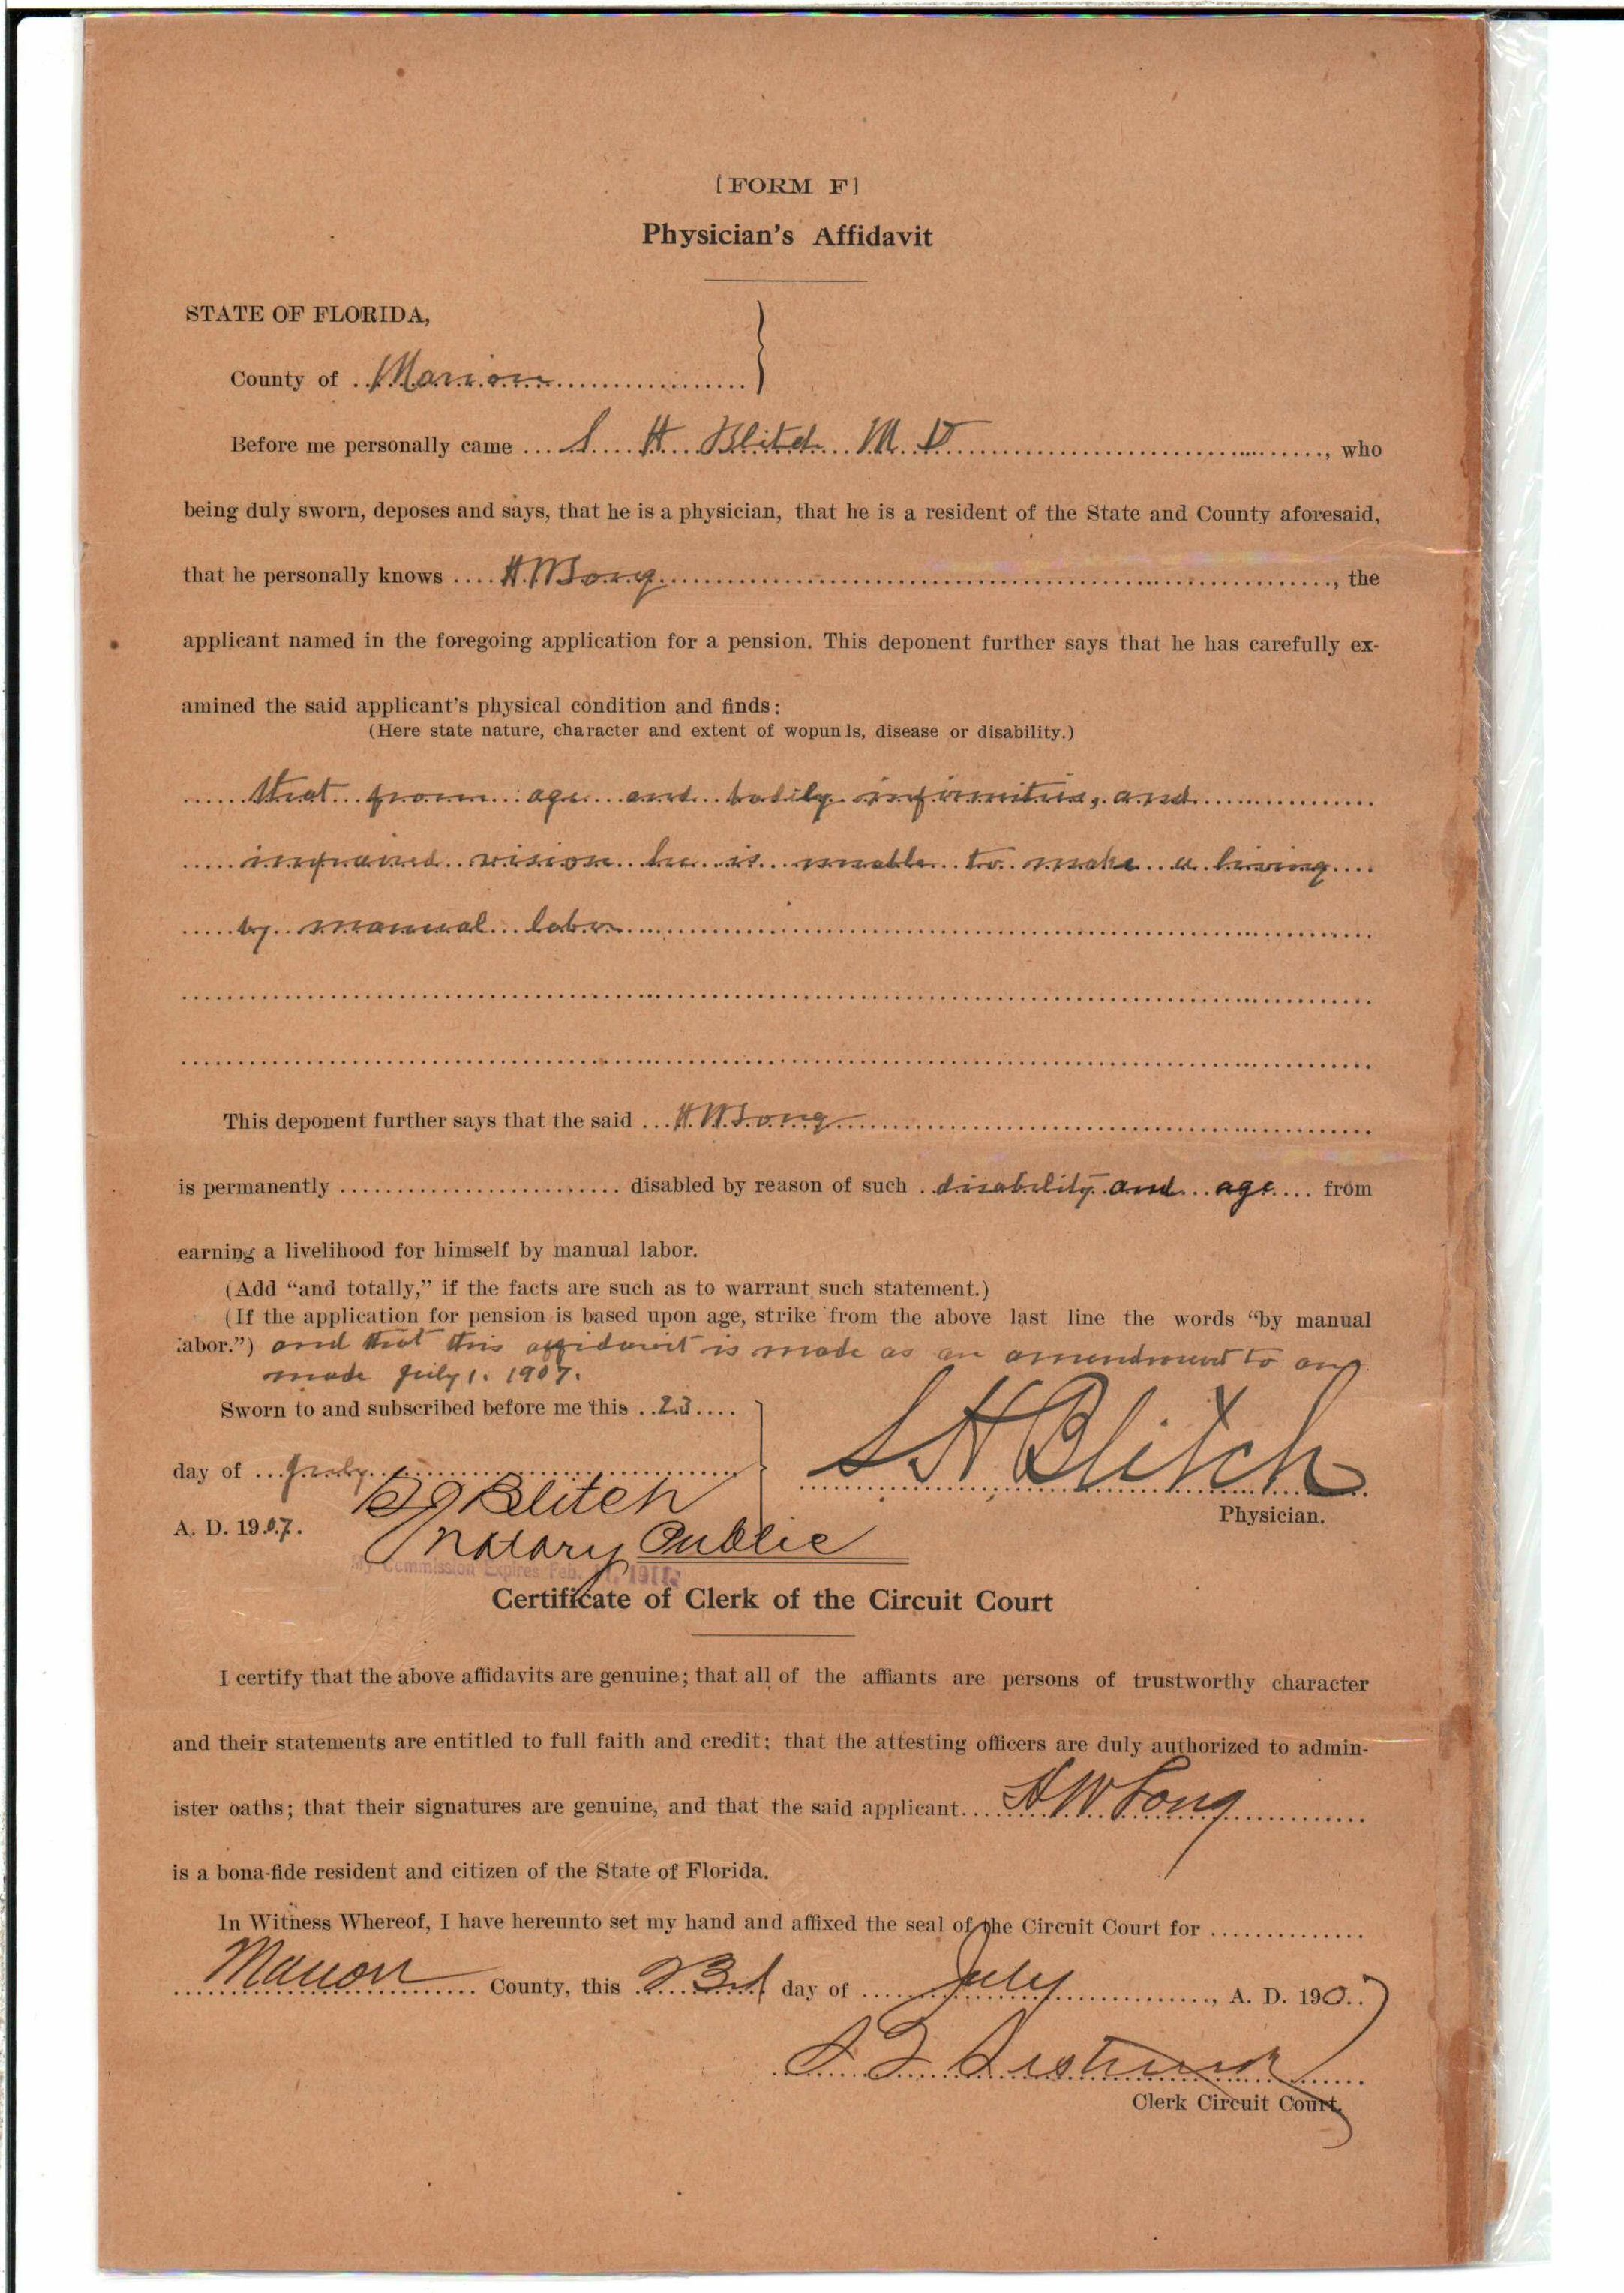 [FORM F]
Physician's Affidavit
STATE OF FLORIDA,
County of Marion
Before me personally came S. H. Blitch M. D. , who
being duly sworn, deposes and says, that he is a physician, that he is a resident of the State and County aforesaid,
that he personally knows H. W. Long , the
applicant named in the foregoing application for a pension. This deponent further says that he has carefully ex-
amined the said applicant's physical condition and finds:
(Here state nature, character and extent of wopun ls, disease or disability.)
that from age and bodily infirmities, and
impaired vision he is unable to make a living
by manual labor
This deponent further says that the said H. W. Long
is permanently disabled by reason of such disability and age from
earning a livelihood for himself by manual labor.
(Add "and totally," if the facts are such as to warrant such statement.)
(If the application for pension is based upon age, strike from the above last line the words "by manual
labor.") and that this affidavit is made as an amendment to one
made July 1. 1907.
Sworn to and subscribed before me this 23
day of July
S H Blitch
Physician.
Blitch
A. D. 1907.
Notary Public
My Commission Expires Feb. 1911
Certificate of Clerk of the Circuit Court
I certify that the above affidavits are genuine; that all of the affiants are persons of trustworthy character
and their statements are entitled to full faith and credit; that the attesting officers are duly authorized to admin-
ister oaths; that their signatures are genuine, and that the said applicant H W Long
is a bona-fide resident and citizen of the State of Florida.
In Witness Whereof, I have hereunto set my hand and affixed the seal of the Circuit Court for
Marion County, this 23rd day of July , A. D. 1907
Clerk Circuit Court.